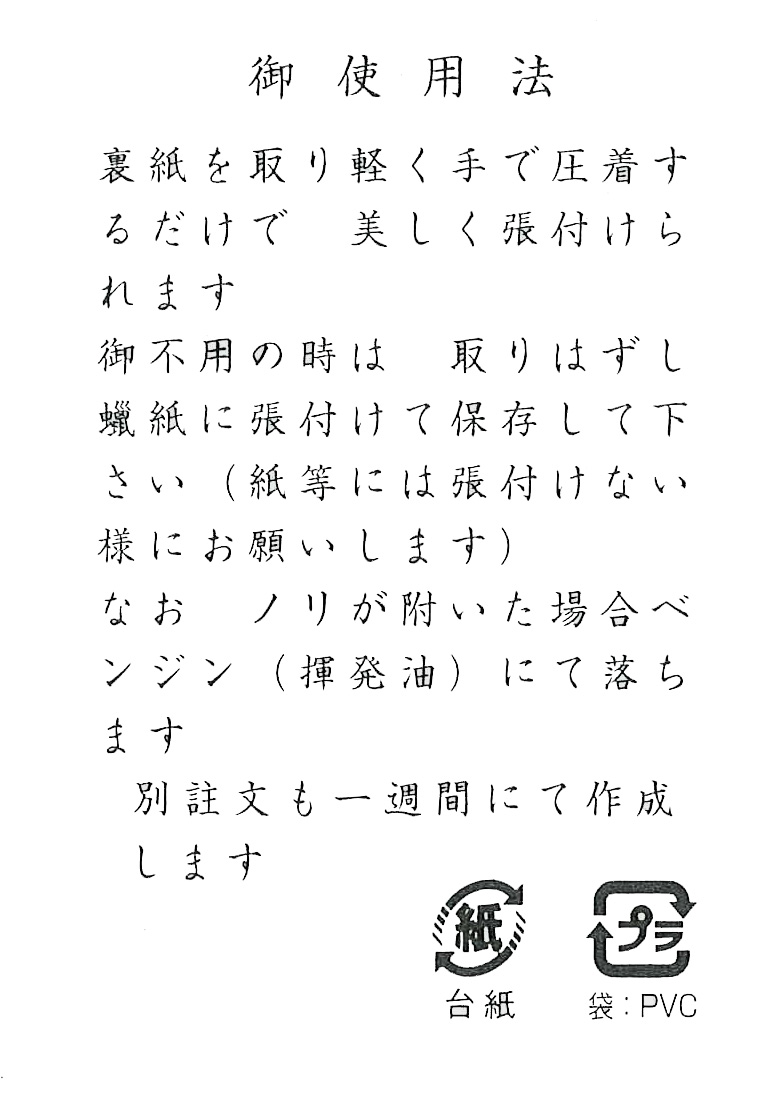 御使用法
裏紙を取り軽く手で圧着す
るだけで　美しく張付けら
れます
御不用の時は　取りはずし
蠟紙に張付けて保存して下
さい（紙等には張付けない
様にお願いします）
なお　ノリが附いた場合ベ
ンジン（揮発油）にて落ち
ます
別註文も一週間にて作成
します
紙　プラ
台紙　袋：PVC